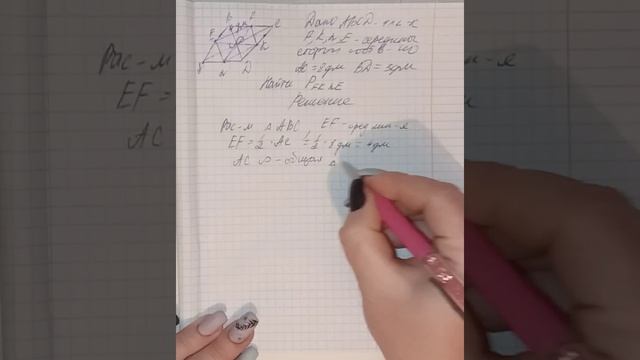 Дано ABCD - пл-к
F, K, N, E - середины
сторон
AC = 8 дм BD = 5 дм
Найти P FKNE
Решение
Рас-м △ ABC EF - сред лин-я
EF = 1/2 · AC = 1/2 · 8 дм = 4 дм
AC - общая